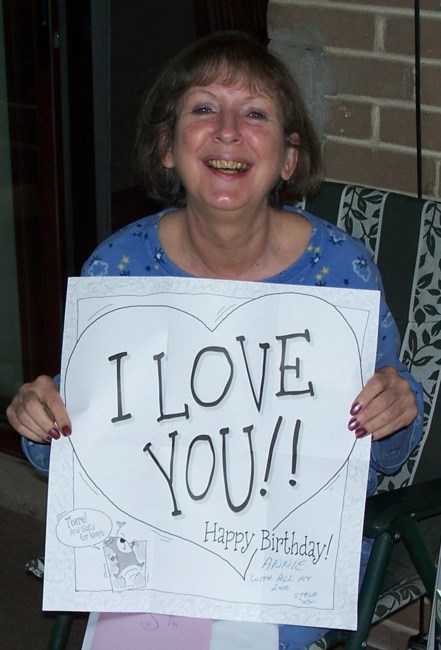 I LOVE
YOU!!
Happy Birthday!
ANNIE
WITH ALL MY
LOVE
STEVE
There!
And that's
for keeps.